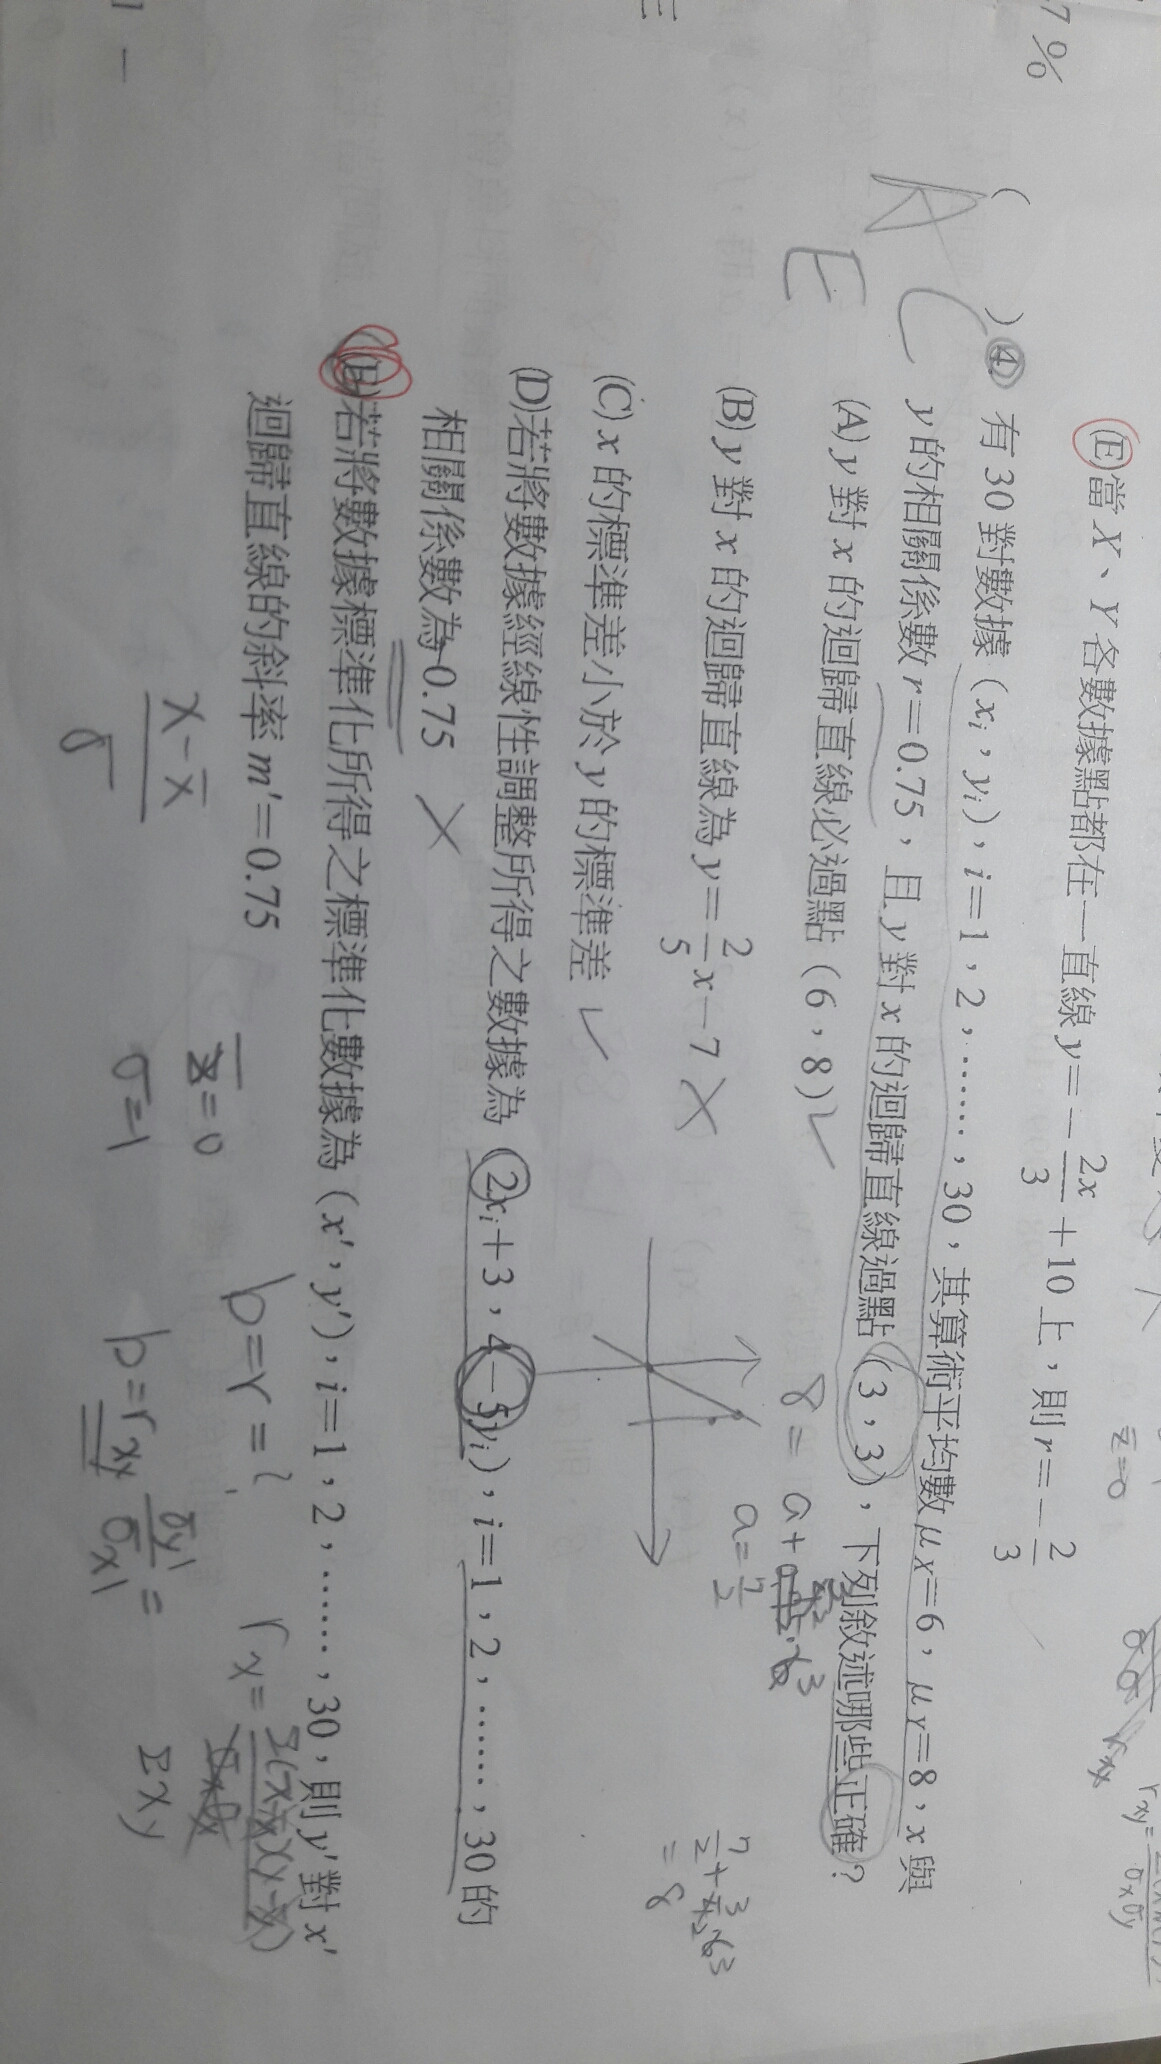 7%
(E)當 X、Y 各數據點都在一直線 y=-2x/3+10 上,則 r=-2/3
z̄=0
( )4. 有 30 對數據(xi,yi),i=1,2,……,30,其算術平均數 μX=6,μY=8,x 與
y 的相關係數 r=0.75,且 y 對 x 的迴歸直線過點(3,3),下列敘述哪些正確?
AC
E
(A) y 對 x 的迴歸直線必過點(6,8)✓
(B) y 對 x 的迴歸直線為 y=2/5x-7 ×
(C) x 的標準差小於 y 的標準差 ✓
(D)若將數據經線性調整所得之數據為(2xi+3,4-5yi),i=1,2,……,30 的
相關係數為 0.75 ×
(E)若將數據標準化所得之標準化數據為(x',y'),i=1,2,……,30,則 y' 對 x'
迴歸直線的斜率 m'=0.75
a=7/2
=8
x-x̄
σ=1
b=r=?
Σxy